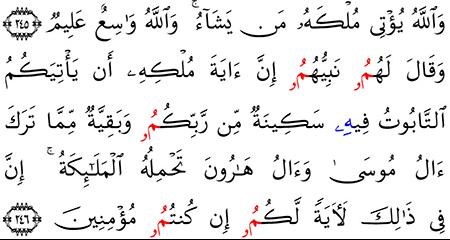 وَٱللَّهُ يُؤْتِى مُلْكَهُۥ مَن يَشَآءُ ۚ وَٱللَّهُ وَٰسِعٌ عَلِيمٌ ٢٤٥
وَقَالَ لَهُمُۥ نَبِيُّهُمُۥ إِنَّ ءَايَةَ مُلْكِهِۦ أَن يَأْتِيَكُمُ
ٱلتَّابُوتُ فِيهِۦ سَكِينَةٌ مِّن رَّبِّكُمُۥ وَبَقِيَّةٌ مِّمَّا تَرَكَ
ءَالُ مُوسَىٰ وَءَالُ هَٰرُونَ تَحْمِلُهُ ٱلْمَلَٰٓئِكَةُ ۚ إِنَّ
فِى ذَٰلِكَ لَأٓيَةً لَّكُمُۥ إِن كُنتُمُۥ مُؤْمِنِينَ ٢٤٦